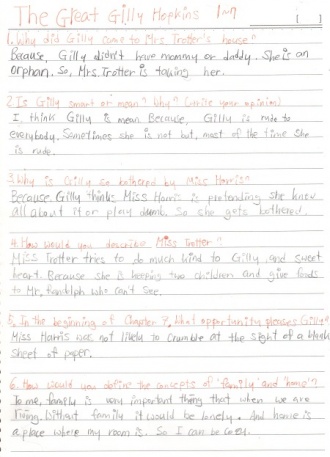 The Great Gilly Hopkins 1~7 [ ]
1. Why did Gilly come to Mrs Trotter's house?
Because, Gilly didn't have mommy or daddy. She is an
orphan. So, Mrs. Trotter is taking her.
2. Is Gilly smart or mean? Why? (write your opinion)
I think Gilly is mean. Because, Gilly is rude to
everybody. Sometimes she is not but, most of the time she
is rude.
3. Why is Gilly so bothered by Miss Harris?
Because Gilly thinks Miss Harris is pretending she knew
all about it or play dumb. So she gets bothered.
4. How would you describe Miss Trotter?
Miss Trotter tries to do much kind to Gilly, and sweet
heart. Because she is keeping two children and give foods
to Mr. Randolph who can't see.
5. In the beginning of Chapter 7, What opportunity pleases Gilly?
Miss Harris was not likely to crumble at the sight of a blank
sheet of paper.
6. How would you define the concepts of 'family' and 'home'?
To me, family is very important thing that when we are
living. Without family it would be lonely. And home is
a place where my room is. So I can be cozy.